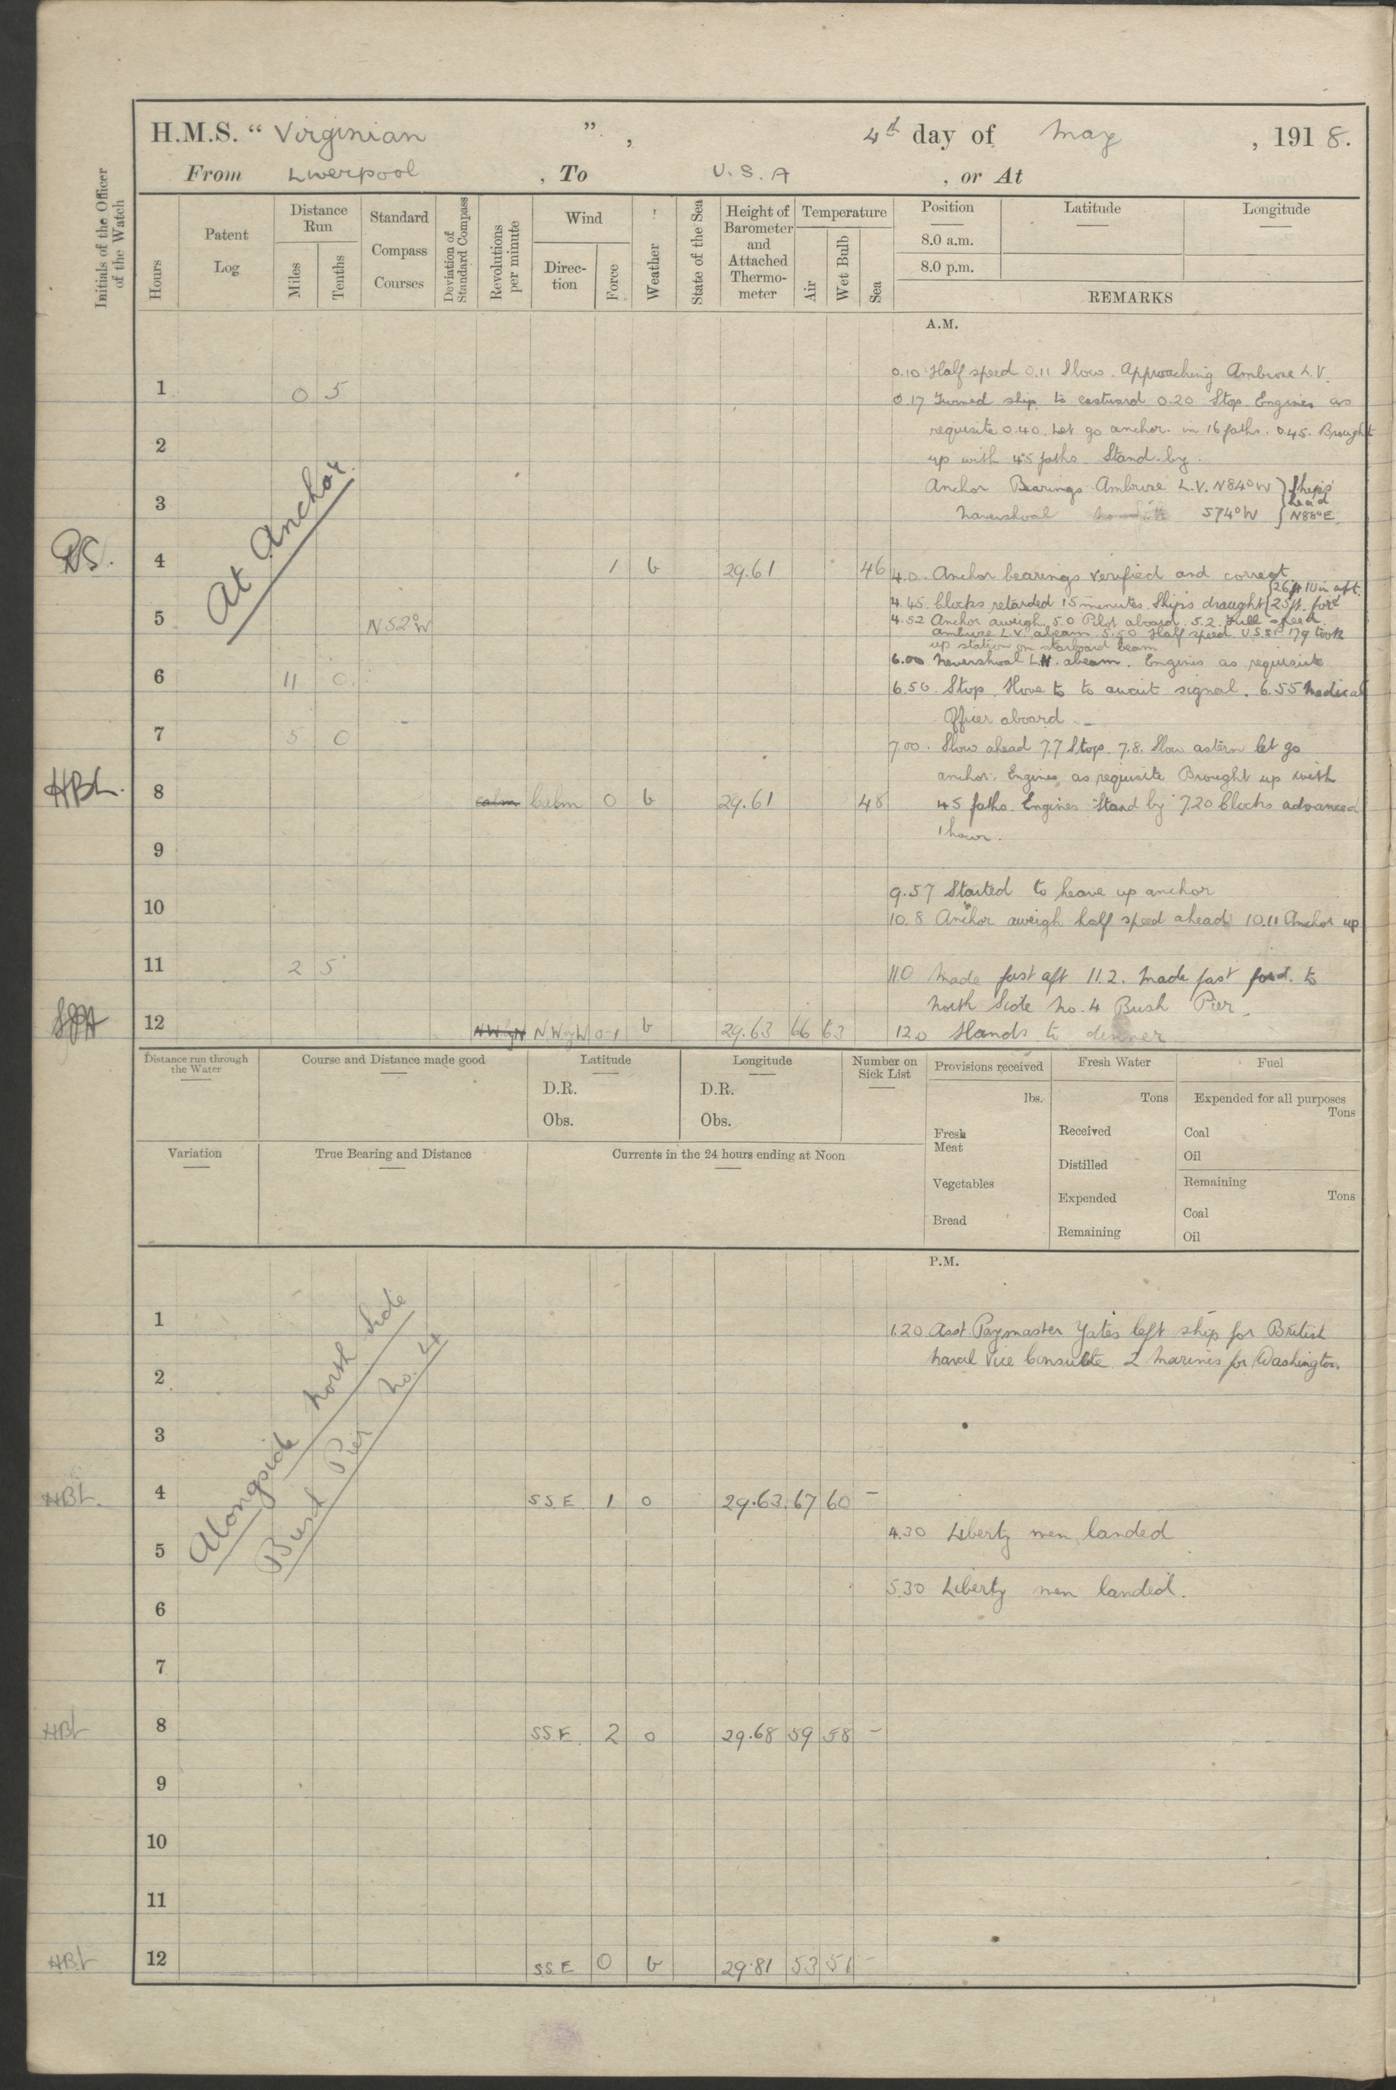 H.M.S. “ Virginian ” , 4th day of May , 1918.
From Liverpool , To U.S.A , or At
Initials of the Officer of the Watch
Hours
Patent Log
Distance Run
Miles
Tenths
Standard Compass Courses
Deviation of Standard Compass
Revolutions per minute
Wind
Direction
Force
Weather
State of the Sea
Height of Barometer and Attached Thermometer
Temperature
Air
Wet Bulb
Sea
Position
Latitude
Longitude
8.0 a.m.
8.0 p.m.
REMARKS
A.M.
0.10 Half speed 0.11 Slow. Approaching Ambrose L.V.
1 0 5 0.17 Turned ship to eastward 0.20 Stop Engines as
requisite 0.40. Let go anchor. in 16 faths. 0.45. Brought
2 up with 45 faths Stand-by.
At Anchor
Anchor Bearings Ambrose L.V. N84°W } Ship's head
3 S74°W } N88°E
RS. 4 1 b 29.61 46 4.0. Anchor bearings verified and correct
4.45. Clocks retarded 15 minutes. Ship's draught {26ft 10in aft. 25ft. ford
5 N52°W 4.52 Anchor aweigh 5.0 Pilot aboard. 5.2. Full speed.
Ambrose L.V. abeam 5.50 Half speed U.S.S. 179 took
up station on starboard beam
6.00 abeam. Engines as requisite
6 11 0 6.50. Stop. Hove to to await signal. 6.55 Medical
Officer aboard. –
7 5 0 7.00. Slow ahead 7.7 Stop. 7.8. Slow astern let go
anchor. Engines as requisite Brought up with
HBL. 8 calm Calm 0 b 29.61 48 45 faths. Engines "Stand by" 7.20 Clocks advanced
1 hour.
9
9.57 Started to heave up anchor
10 10.8 Anchor aweigh half speed ahead 10.11 Anchor up
11 2 5 11.0 Made fast aft 11.2. Made fast ford. to
North Side No. 4 Bush Pier.
12 NWbyN NWbyW 0-1 b 29.63 66 63 12.0 Hands to dinner
Distance run through the Water
Course and Distance made good
Latitude
D.R.
Obs.
Longitude
D.R.
Obs.
Number on Sick List
Provisions received
lbs.
Fresh Meat
Vegetables
Bread
Fresh Water
Tons
Received
Distilled
Expended
Remaining
Fuel
Expended for all purposes
Tons
Coal
Oil
Remaining
Tons
Coal
Oil
Variation
True Bearing and Distance
Currents in the 24 hours ending at Noon
P.M.
Alongside North Side
Bush Pier No. 4
1 1.20 Asst Paymaster Yates left ship for British
Naval Vice Consulte 2 Marines for Washington.
2
3
HBL. 4 SSE 1 o 29.63 67 60 –
4.30 Liberty men landed
5
5.30 Liberty men landed.
6
7
HBL 8 SSE 2 o 29.68 59 58 –
9
10
11
HBL 12 SSE 0 b 29.81 53 51 –